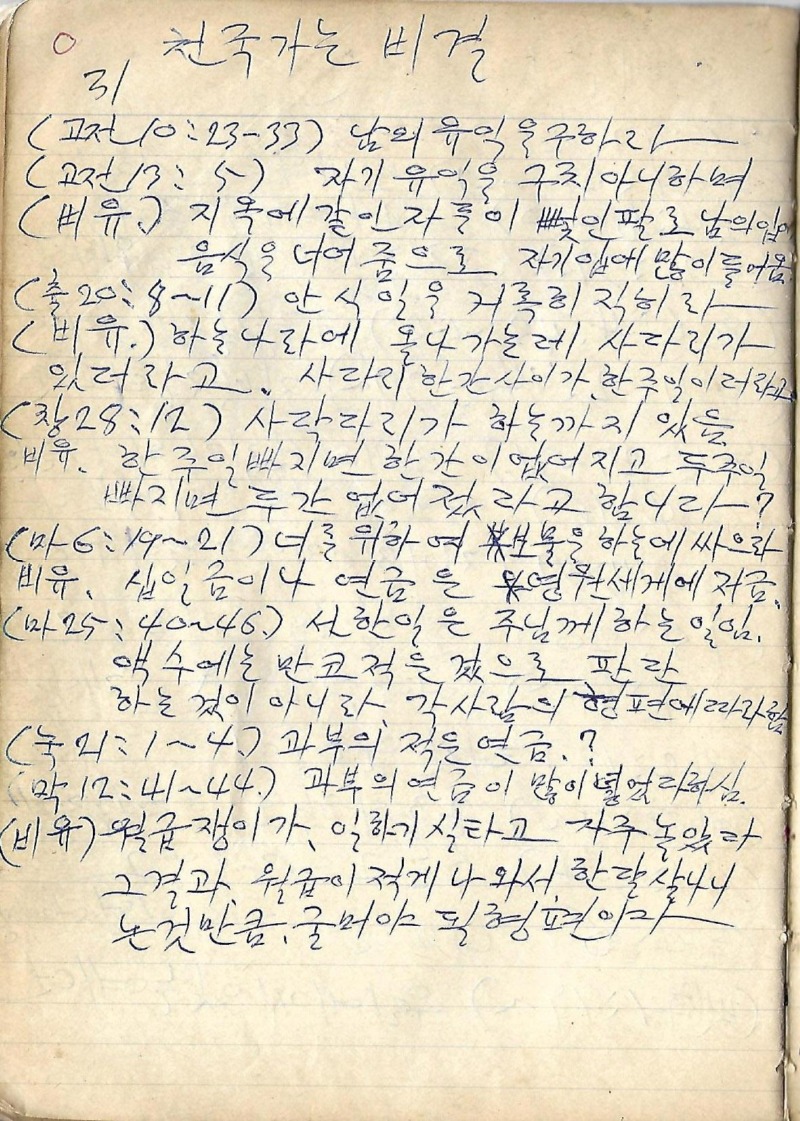 0 천국가는 비결
31
(고전10:23-33) 남의 유익을구하라
(고전13:5) 자기 유익을 구치아니하며
(비유.) 지옥에갈인자들이 뻣인팔로남의입에
음식을 너어줌으로 자기입에많이들어옴.
(출20:8~11) 안식일을 거록히 직히라
(비유.) 하늘나라에 올나가는레 사다리가
있더라고. 사다리한간사이가,한주일이더라고
(창28:12) 사락다리가 하늘까지 있음
비유. 한주일빠지면 한간이없어지고 두주일
빠지면 두간없어젔라고 합니다?
(마6:19~21) 너를위하여 보물을하늘에싸으라
비유. 십일금이나 연금은 영원세게에저금.
(마25:40~46.) 선한일은 주님께하는일임.
액수에는 만코적은겄으로 판단
하는겄이아니라, 각사람의 형편에따라함
(눅21:1~4.) 과부의 적은연금.?
(막12:41~44.) 과부의연금이 많이넣었다하심.
(비유) 월급쟁이가, 일하기싫타고 자주놀았다
그결과, 월급이적게나와서, 한달살나니
논것만큼, 굴머야 될형편이다